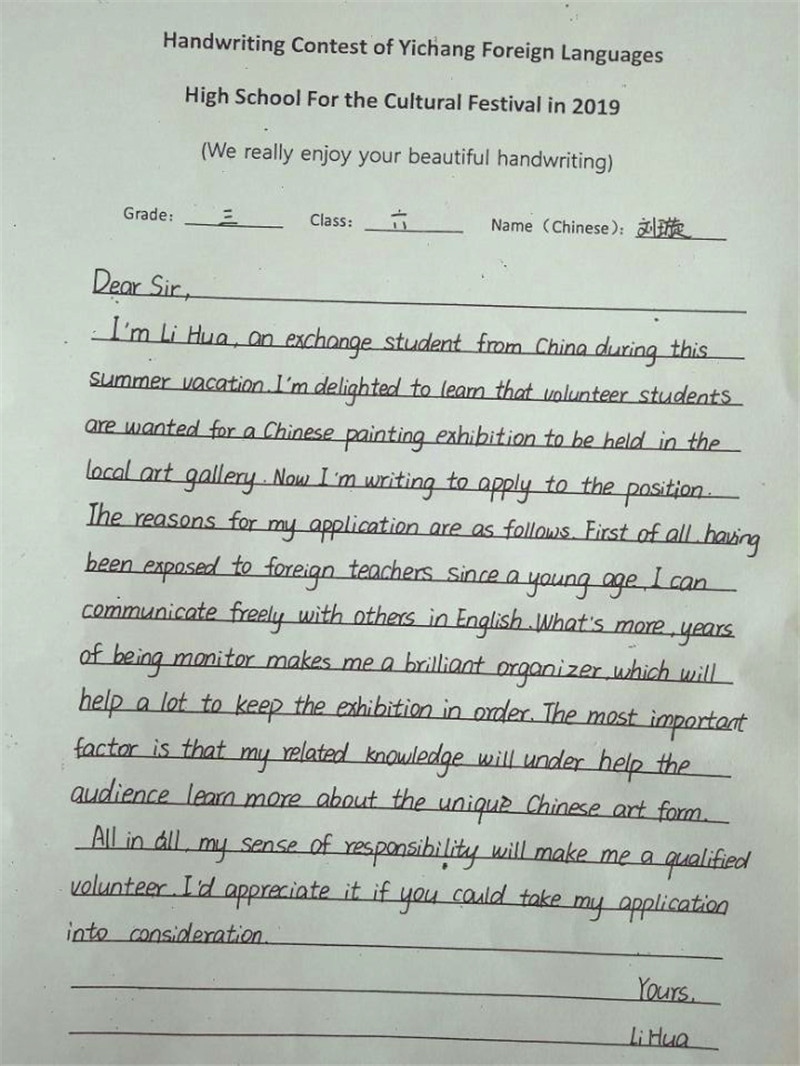 Handwriting Contest of Yichang Foreign Languages
High School For the Cultural Festival in 2019
(We really enjoy your beautiful handwriting)
Grade: 三 Class: 六 Name (Chinese): 刘璇
Dear Sir,
I'm Li Hua, an exchange student from China during this
summer vacation. I'm delighted to learn that volunteer students
are wanted for a Chinese painting exhibition to be held in the
local art gallery. Now I'm writing to apply to the position.
The reasons for my application are as follows. First of all, having
been exposed to foreign teachers since a young age, I can
communicate freely with others in English. What's more, years
of being monitor makes me a brilliant organizer, which will
help a lot to keep the exhibition in order. The most important
factor is that my related knowledge will under help the
audience learn more about the unique Chinese art form.
All in all, my sense of responsibility will make me a qualified
volunteer. I'd appreciate it if you could take my application
into consideration.
Yours,
Li Hua